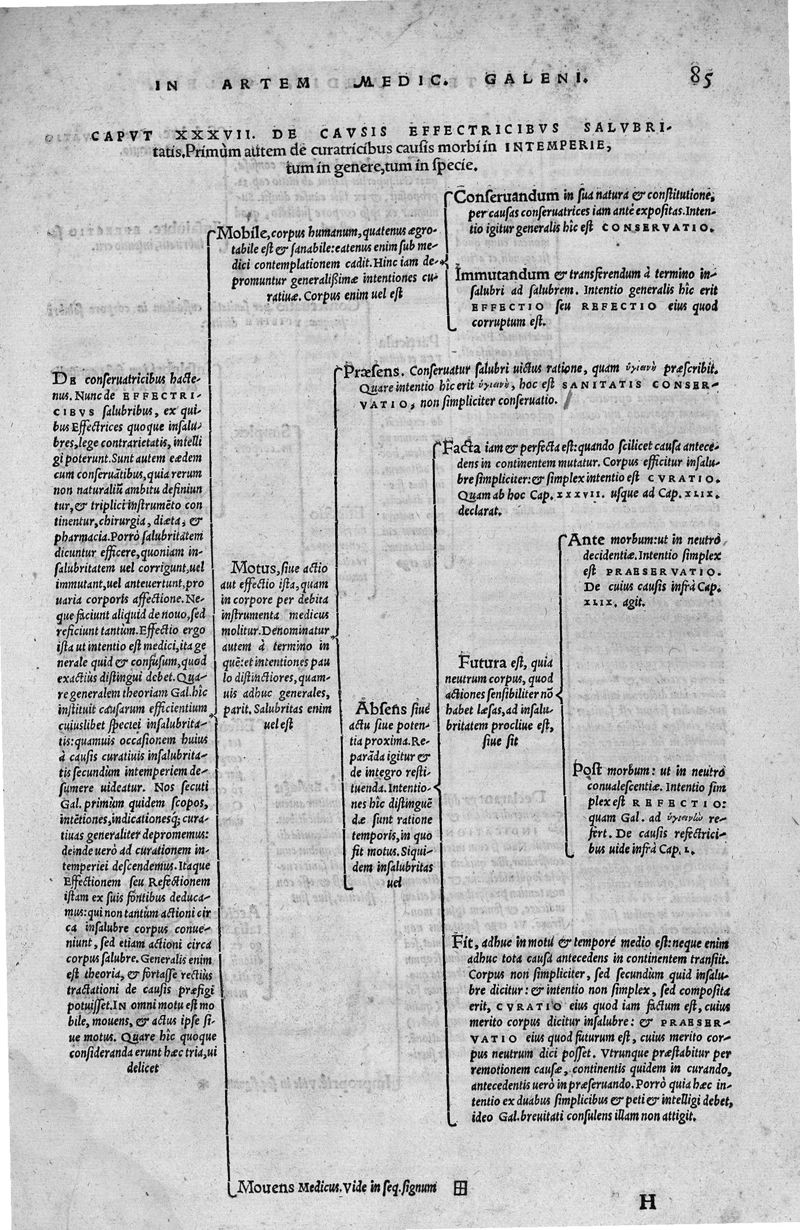 IN ARTEM MEDIC. GALENI. 85
CAPVT XXXVII. DE CAVSIS EFFECTRICIBVS SALVBRI-
tatis. Primùm autem de curatricibus causis morbi in INTEMPERIE,
tum in genere, tum in specie.
DE conseruatricibus hacte-
nus. Nunc de EFFECTRI-
CIBVS salubribus, ex qui-
bus Effectrices quoque insalu-
bres, lege contrarietatis, intelli
gi poterunt. Sunt autem eædem
cum conseruãtibus, quia rerum
non naturaliũ ambitu definiun
tur, & triplici instrumẽto con
tinentur, chirurgia, diæta, &
pharmacia. Porrò salubritatem
dicuntur efficere, quoniam in-
salubritatem uel corrigunt, uel
immutant, uel anteuertunt, pro
uaria corporis affectione. Ne-
que faciunt aliquid de nouo, sed
reficiunt tantùm. Effectio ergo
ista ut intentio est medici, ita ge
nerale quid & confusum, quod
exactiùs distingui debet. Qua-
re generalem theoriam Gal. hîc
instituit causarum efficientium
cuiuslibet speciei insalubrita-
tis: quamuis occasionem huius
à causis curatiuis insalubrita-
tis secundùm intemperiem de-
sumere uideatur. Nos secuti
Gal. primùm quidem scopos,
intẽtiones, indicationesq; cura-
tiuas generaliter depromemus:
deinde uerò ad curationem in-
temperiei descendemus. Itaque
Effectionem seu Refectionem
istam ex suis fontibus deduca-
mus: qui non tantùm actioni cir
ca insalubre corpus conue-
niunt, sed etiam actioni circa
corpus salubre. Generalis enim
est theoria, & fortasse rectiùs
tractationi de causis præfigi
potuisset. IN omni motu est mo
bile, mouens, & actus ipse si-
ue motus. Quare hîc quoque
consideranda erunt hæc tria, ui
delicet
Mobile, corpus humanum, quatenus ægro-
tabile est & sanabile: eatenus enim sub me-
dici contemplationem cadit. Hinc iam de-
promuntur generalißimæ intentiones cu-
ratiuæ. Corpus enim uel est
Conseruandum in sua natura & constitutione,
per causas conseruatrices iam antè expositas. Inten-
tio igitur generalis hîc est CONSERVATIO.
Immutandum & transferendum à termino in-
salubri ad salubrem. Intentio generalis hîc erit
EFFECTIO seu REFECTIO eius quod
corruptum est.
Motus, siue actio
aut effectio ista, quam
in corpore per debita
instrumenta medicus
molitur. Denominatur
autem à termino in
quẽ: et intentiones pau
lo distinctiores, quam-
uis adhuc generales,
parit. Salubritas enim
uel est
Præsens. Conseruatur salubri uictus ratione, quam præscribit.
Quare intentio hîc erit , hoc est SANITATIS CONSER-
VATIO, non simpliciter conseruatio.
Absens siue
actu siue poten-
tia proxima. Re-
parãda igitur &
de integro resti-
tuenda. Intentio-
nes hîc distinguẽ
dæ sunt ratione
temporis, in quo
fit motus. Siqui-
dem insalubritas
uel
Facta iam & perfecta est: quando scilicet causa antece-
dens in continentem mutatur. Corpus efficitur insalu-
bre simpliciter: & simplex intentio est CVRATIO.
Quam ab hoc Cap. XXXVII. usque ad Cap. XLIX.
declarat.
Futura est, quia
neutrum corpus, quod
actiones sensibiliter nõ
habet læsas, ad insalu-
britatem procliue est,
siue sit
Ante morbum: ut in neutro
decidentiæ. Intentio simplex
est PRAESERVATIO.
De cuius causis infrà Cap.
XLIX. agit.
Post morbum: ut in neutro
conualescentiæ. Intentio sim
plex est REFECTIO:
quam Gal. ad re-
fert. De causis refectrici-
bus uide infrà Cap. L.
Fit, adhuc in motu & tempore medio est: neque enim
adhuc tota causa antecedens in continentem transiit.
Corpus non simpliciter, sed secundùm quid insalu-
bre dicitur: & intentio non simplex, sed composita
erit, CVRATIO eius quod iam factum est, cuius
merito corpus dicitur insalubre: & PRAESER-
VATIO eius quod futurum est, cuius merito cor-
pus neutrum dici posset. Vtrunque præstabitur per
remotionem causæ, continentis quidem in curando,
antecedentis uerò in præseruando. Porrò quia hæc in-
tentio ex duabus simplicibus & peti & intelligi debet,
ideo Gal. breuitati consulens illam non attigit.
Mouens Medicus. Vide in seq. signum
H